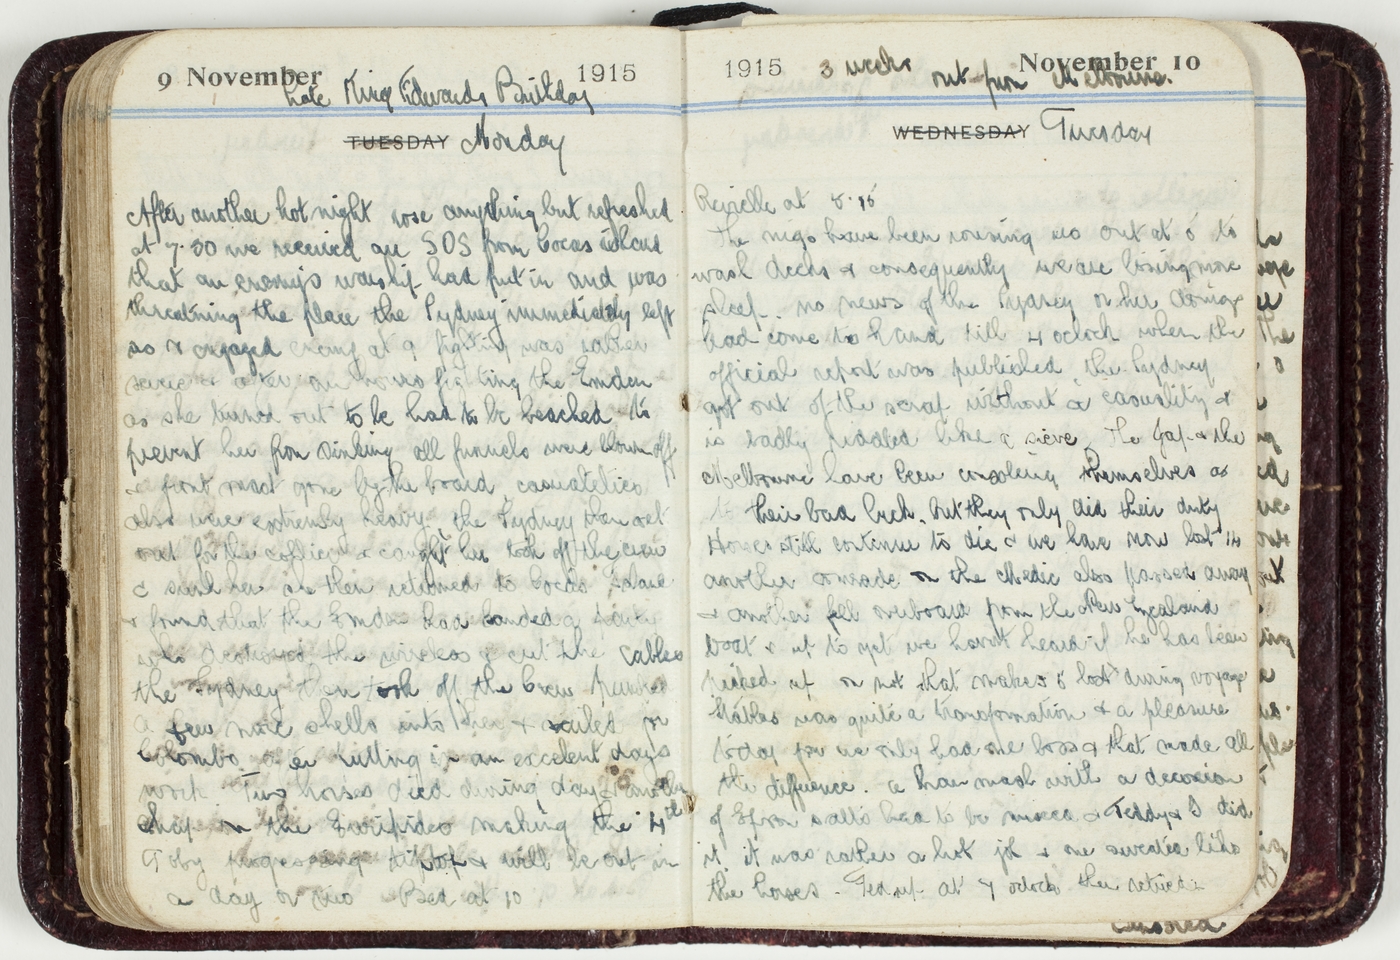 9 November 1915
Late King Edwards Birthday
TUESDAY Monday
After another hot night rose anything but refreshed
at 7.30 we received an SOS from Cocos Island
that an enemys warship had put in and was
threatning the place the Sydney immediately left
so & engaged enemy at 9 fighting was rather
severe & after an hours fighting the Emden
as she turned out to be had to be beached to
prevent her from sinking all funnels were blown off
& front mast gone by the board, casualties
also were extremly heavy. the Sydney then set
out for the collier & caught her took off the crew
& sunk her & then returned to Cocos Island
& found that the Emden had landed a
who destroyed the wireless & cut the cables
the Sydney then took off the Crew pumped
a few more shells into her & sailed for
Colombo after putting in an excelent days
work Two horses died during day & another
chap on the Euripides making the 4th
Toby progressing tip top & will be out in
a day or two Bed at 10
1915 November 10
3 weeks out from Melbourne.
WEDNESDAY Tuesday
Reveille at 5.15
The nigs have been rousing us out at 5 to
wash decks & consequently we are losing more
sleep. no news of the Sydney or her doings
had come to hand till 4 oclock when the
official report was published, the Sydney
got out of the scrap without a casualty &
is badly riddled like a sieve, The Jap & the
Melbourne have been consoling themselves as
to their bad luck. but they only did their duty
Horses still continue to die & we have now lost 14
another comrade on the Medic also passed away
& another fell overboard from the New Zealand
boat & up to yet we havnt heard if he has been
picked up or not that makes 5 lost during voyage
Stables was quite a transformation & a pleasure
today for we only had one horse & that made all
the difference. a bran mash with a decoction
of Epsom salts had to be mixed & Teddy & I did
it. it was rather a hot job & one sweated like
the horses. Fed up at 7 oclock then retired
censored